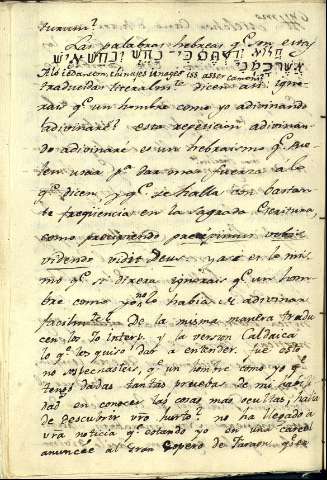 turum?
Las palabras hebreas q.e son estas
הלוא ידעתם כי נחש ינחש איש
אשר כמני
traducidas literalm.te dicen asi: igno-
rais q.e un hombre como yo adivinando
adivinarè? esta repeticion adivinan-
do adivinarè es un hebraismo q.e sue-
len usar p.a dar mas fuerza á lo
q.e dicen, y q.e se halla con bastan-
te freqüencia en la Sagrada Escritura,
como precipiendo precipimus vobis
videndo vidit Deus: y asi es lo mis-
mo q.e si dixera ignorais q.e un hom-
bre como yo no lo habia de adivinar
facilm.te? De la misma manera tradu-
cen los 70 Interp. y la version Caldaica
lo q.e les quiso dar a entender, fue esto
no sabeis q.e un hombre como yo q.e
tengo dadas tantas pruebas de mi habili-
dad en conocer las cosas mas ocultas, habia
de descubrir vro hurto? no ha llegado á
vra noticia q.e estando yo en una carcel
anuncié al Gran Copero de Faraon q.e